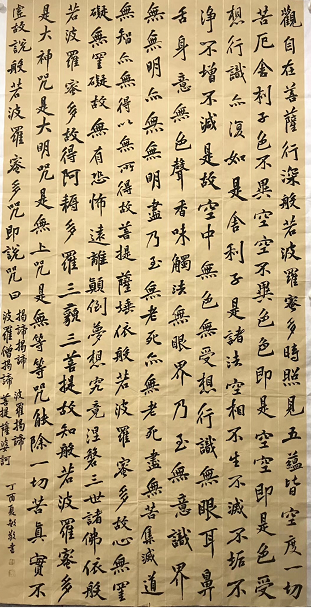 觀自在菩薩行深般若波羅蜜多時照見五蘊皆空度一切
苦厄舍利子色不異空空不異色色即是空空即是色受
想行識亦復如是舍利子是諸法空相不生不滅不垢不
淨不增不減是故空中無色無受想行識無眼耳鼻
舌身意無色聲香味觸法無眼界乃至無意識界
無無明亦無無明盡乃至無老死亦無老死盡無苦集滅道
無智亦無得以無所得故菩提薩埵依般若波羅蜜多故心無罣
礙無罣礙故無有恐怖遠離顛倒夢想究竟涅槃三世諸佛依般
若波羅蜜多故得阿耨多羅三藐三菩提故知般若波羅蜜多
是大神咒是大明咒是無上咒是無等等咒能除一切苦真實不
虛故說般若波羅蜜多咒即說咒曰
揭諦揭諦 波羅揭諦
波羅僧揭諦 菩提薩婆訶
丁酉夏敬書